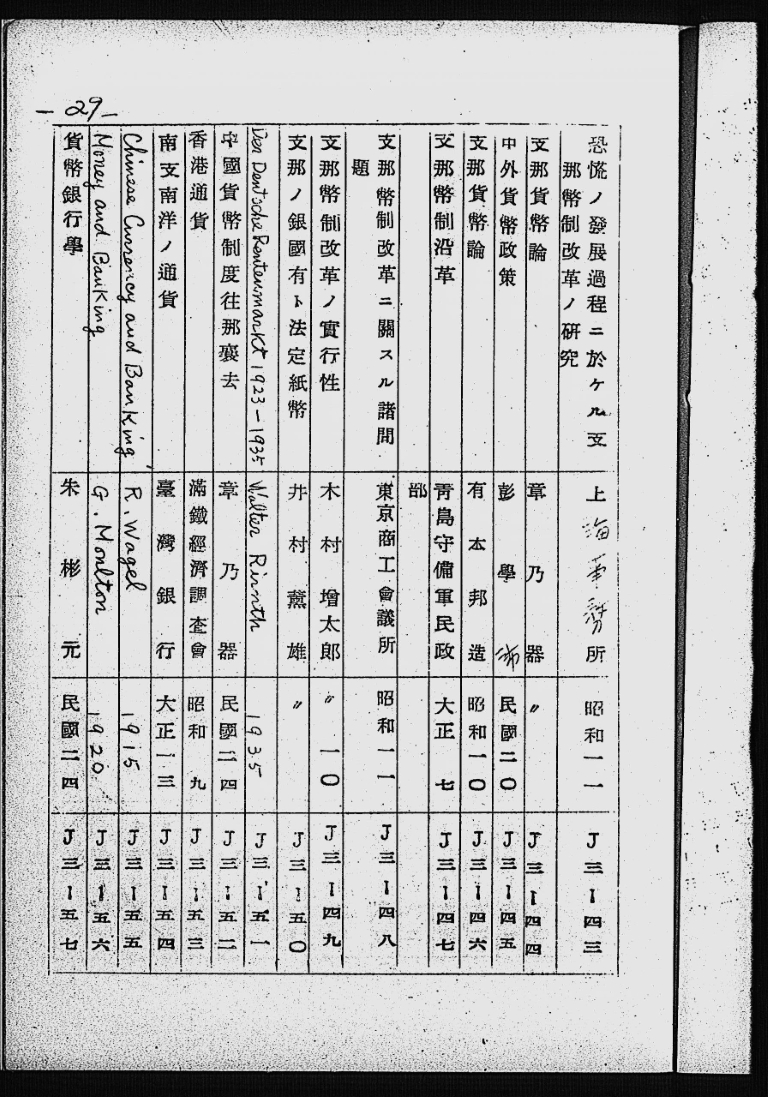 －29－
恐慌ノ發展過程ニ於ケル支
那幣制改革ノ研究
上海事務所
昭和一一
J三－四三
支那貨幣論
章乃器
〃
J三－四四
中外貨幣政策
彭學沛
民國二〇
J三－四五
支那貨幣論
有本邦造
昭和一〇
J三－四六
支那幣制沿革
靑島守備軍民政
部
大正七
J三－四七
支那幣制改革ニ關スル諸問
題
東京商工會議所
昭和一一
J三－四八
支那幣制改革ノ實行性
木村增太郎
〃一〇
J三－四九
支那ノ銀國有ト法定紙幣
井村薰雄
〃
J三－五〇
Der Deutsche Rentenmarkt 1923－1935
Walter Rinnth
1935
J三－五一
中國貨幣制度往那裏去
章乃器
民國二四
J三－五二
香港通貨
滿鐵經濟調査會
昭和九
J三－五三
南支南洋ノ通貨
臺灣銀行
大正一三
J三－五四
Chinese Currency and Banking
R. Wagel
1915
J三－五五
Money and Banking
G. Moulton
1920
J三－五六
貨幣銀行學
朱彬元
民國二四
J三－五七